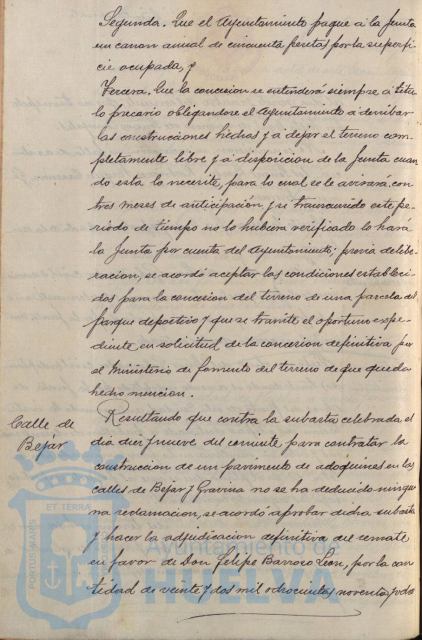 Segunda. Que el Ayuntamiento pague a la Junta
un canon anual de cincuenta pesetas por la superfi-
cie ocupada, y
Tercera. Que la concesion se entenderá siempre a titu-
lo precario obligandose el Ayuntamiento a derribar
las construcciones hechas y a dejar el terreno com-
pletamente libre y a disposicion de la Junta cuan
do esta lo necesite, para lo cual se le avisará con
tres meses de anticipación y si transcurrido este pe-
riodo de tiempo no lo hubiera verificado lo hará
la Junta por cuenta del Ayuntamiento; previa delibe-
racion, se acordó aceptar las condiciones estableci-
das para la concesion del terreno de una parcela del
parque deportivo y que se tramite el oportuno expe-
diente en solicitud de la concesion definitiva por
el Ministerio de Fomento del terreno de que queda
hecha mencion.
Calle de
Bejár
Resultando que contra la subasta celebrada el
dia diez y nueve del corriente para contratar la
construccion de un pavimento de adoquines en las
calles de Bejar y Gravina no se ha deducido ningu-
na reclamacion, se acordó aprobar dicha subasta
y hacer la adjudicacion definitiva del remate
en favor de Don Felipe Barroso Leon, por la can
tidad de veinte y dos mil ochocientas noventa y dos
PORTUS MARIS
ET TERRAE
Ayuntamiento de
HUELVA